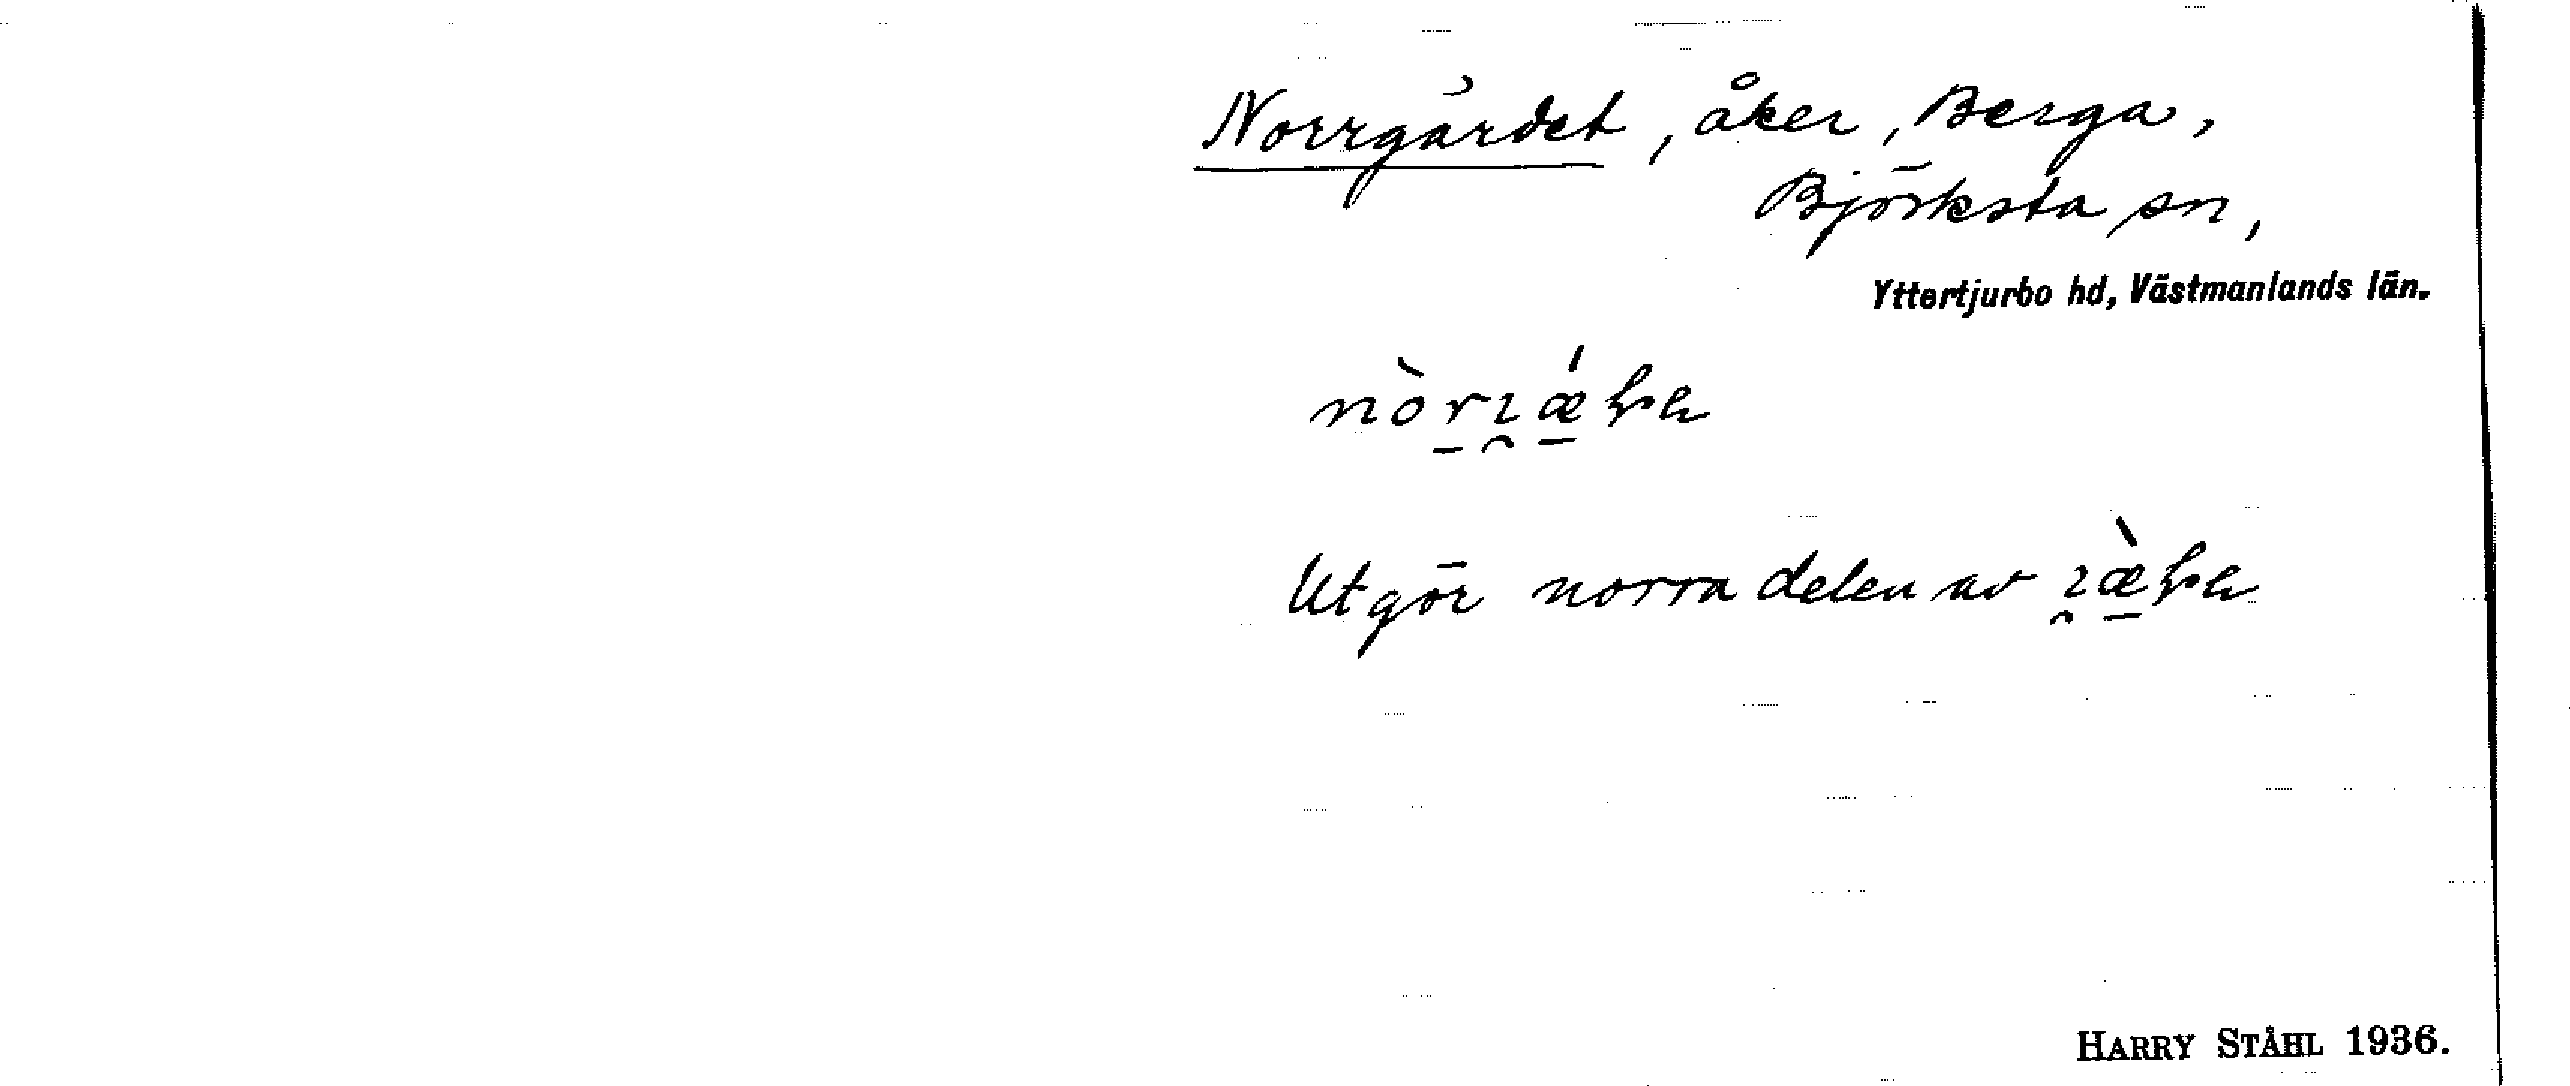 Norrgärdet, åker, Berga,
Björksta sn,
Yttertjurbo hd, Västmanlands län.
Utgör norra delen av
HARRY STÅHL 1936.